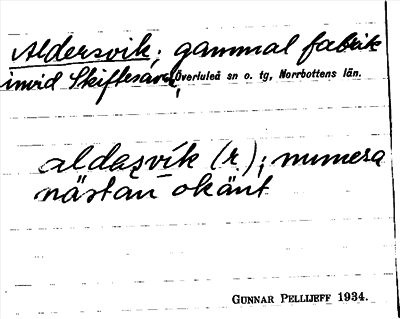 Aldersvik; gammal fabrik
invid Skiftesåen, Överluleå sn o. tg, Norrbottens län.
aldasvik (r); numera
nästan okänt
GUNNAR PELLIJEFF 1934.